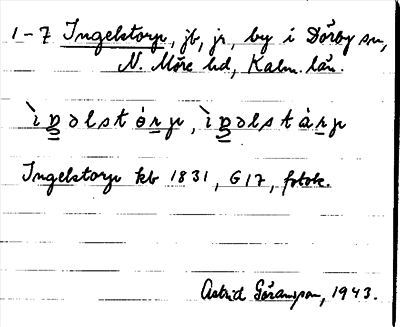 1-7 Ingelstorp, jb, jr, by i Dörby sn,
N. Möre hd, Kalm. län.
ìŋəlstórp, ìŋəlstàrp
Ingelstorp kb 1831, G17, fotok.
Astrid Göransson, 1943.